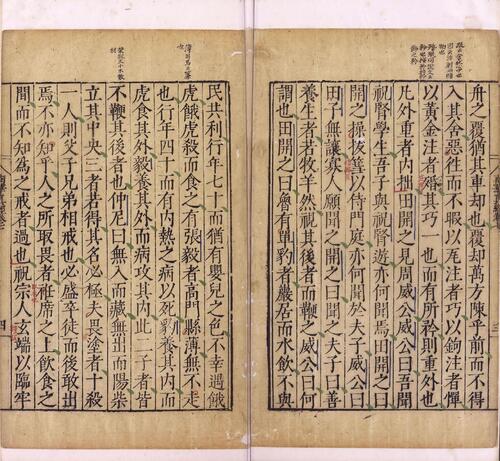 舟之覆猶其車却也覆却萬方陳乎前而不得
入其舍惡往而不暇以瓦注者巧以鉤注者憚
以黃金注者殙其巧一也而有所矜則重外也
凡外重者內拙田開之見周威公威公曰吾聞
祝腎學生吾子與祝腎遊亦何聞焉田開之曰
開之操拔篲以侍門庭亦何聞於夫子威公曰
田子無讓寡人願聞之開之曰聞之夫子曰善
養生者若牧羊然視其後者而鞭之威公曰何
謂也田開之曰魯有單豹者巖居而水飲不與
民共利行年七十而猶有嬰兒之色不幸遇餓
虎餓虎殺而食之有張毅者高門縣薄無不走
也行年四十而有內熱之病以死豹養其內而
虎食其外毅養其外而病攻其內此二子者皆
不鞭其後者也仲尼曰無入而藏無出而陽柴
立其中央三者若得其名必極夫畏塗者十殺
一人則父子兄弟相戒也必盛卒徒而後敢出
焉不亦知乎人之所取畏者袵席之上飲食之
間而不知為之戒者過也祝宗人玄端以臨牢